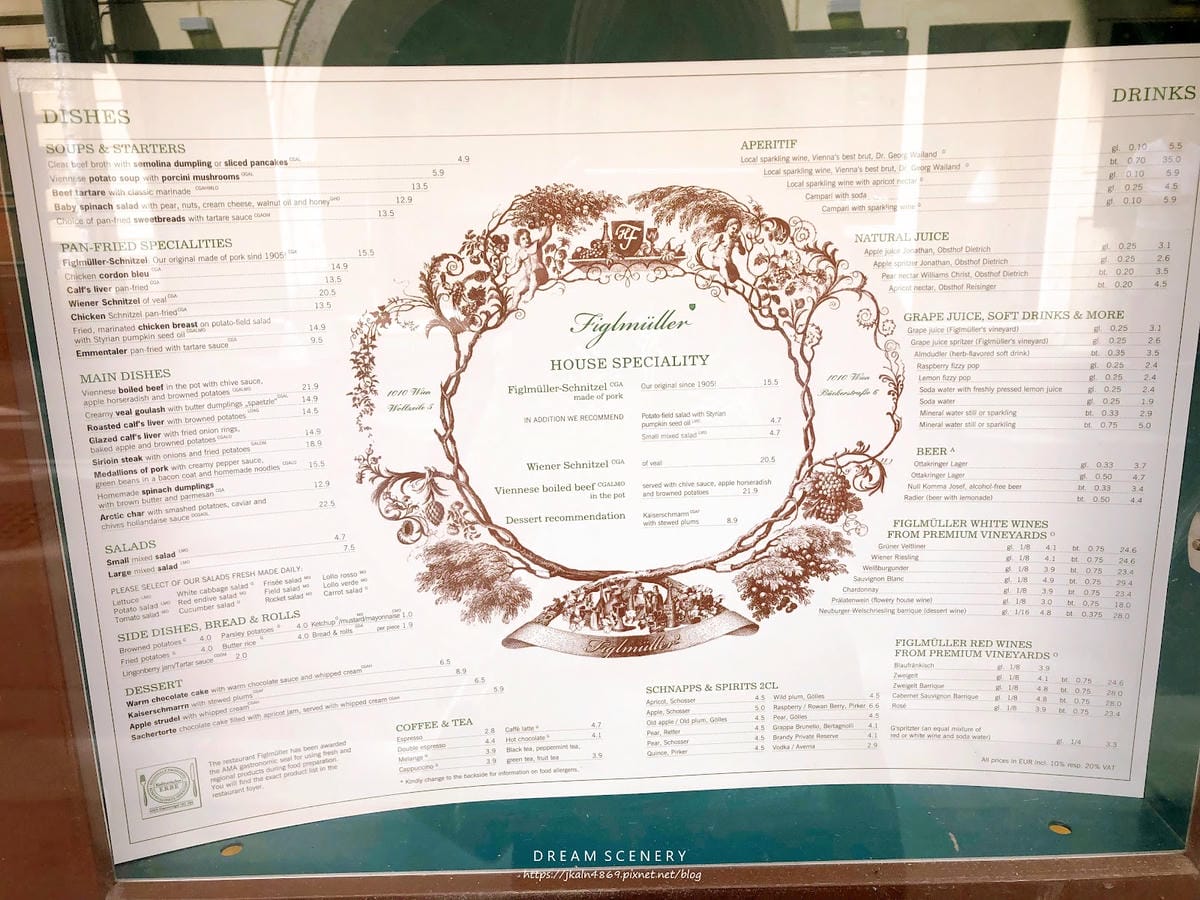 DISHES
SOUPS & STARTERS
Clear beef broth with semolina dumpling or sliced pancakes CGAL 4.9
Viennese potato soup with porcini mushrooms CGAL 5.9
Beef tartare with classic marinade 13.5
Baby spinach salad with pear, nuts, cream cheese, walnut oil and honey GHO 12.9
Choice of pan-fried sweetbreads with tartare sauce 13.5
PAN-FRIED SPECIALITIES
Figlmüller-Schnitzel: Our original made of pork sind 1905! CGA 15.5
Chicken cordon bleu CGA 14.9
Calf's liver pan-fried CGA 13.5
Wiener Schnitzel of veal CGA 20.5
Chicken Schnitzel pan-fried CGA 13.5
Fried, marinated chicken breast on potato-field salad
with Styrian pumpkin seed oil CGALMO 14.9
Emmentaler pan-fried with tartare sauce CGA 9.5
MAIN DISHES
Viennese boiled beef in the pot with chive sauce,
apple horseradish and browned potatoes CGALMO 21.9
Creamy veal goulash with butter dumplings „spaetzle" 14.9
Roasted calf's liver with browned potatoes 14.5
Glazed calf's liver with fried onion rings,
baked apple and browned potatoes 14.9
Sirloin steak with onions and fried potatoes 18.9
Medallions of pork with creamy pepper sauce,
green beans in a bacon coat and homemade noodles 15.5
Homemade spinach dumplings
with brown butter and parmesan CGA 12.9
Arctic char with smashed potatoes, caviar and
chives hollandaise sauce 22.5
SALADS
Small mixed salad LMO 4.7
Large mixed salad LMO 7.5
PLEASE SELECT OF OUR SALADS FRESH MADE DAILY:
Lettuce White cabbage salad Frisée salad Lollo rosso
Potato salad Red endive salad Field salad Lollo verde
Tomato salad Cucumber salad Rocket salad Carrot salad
SIDE DISHES, BREAD & ROLLS
Browned potatoes 4.0 Parsley potatoes 4.0 Ketchup/mustard/mayonnaise 1.0
Fried potatoes 4.0 Butter rice 4.0 Bread & rolls per piece 1.9
Lingonberry jam/Tartar sauce 2.0
DESSERT
Warm chocolate cake with warm chocolate sauce and whipped cream 6.5
Kaiserschmarrn with stewed plums 8.9
Apple strudel with whipped cream 6.5
Sachertorte chocolate cake filled with apricot jam, served with whipped cream 5.9
The restaurant Figlmüller has been awarded
the AMA gastronomic seal for using fresh and
regional products during food preparation.
You will find the exact product list in the
restaurant foyer.
COFFEE & TEA
Espresso 2.8 Caffè latte 4.7
Double espresso 4.4 Hot chocolate 4.1
Melange 3.9 Black tea, peppermint tea,
Cappuccino 3.9 green tea, fruit tea 3.9
* Kindly change to the backside for information on food allergens.
Figlmüller
HOUSE SPECIALITY
Figlmüller-Schnitzel CGA Our original since 1905! 15.5
made of pork
IN ADDITION WE RECOMMEND Potato-field salad with Styrian
pumpkin seed oil LMO 4.7
Small mixed salad LMO 4.7
Wiener Schnitzel CGA of veal 20.5
Viennese boiled beef CGALMO served with chive sauce, apple horseradish
in the pot and browned potatoes 21.9
Dessert recommendation Kaiserschmarrn
with stewed plums 8.9
1010 Wien
Wollzeile 5
1010 Wien
Bäckerstraße 6
Figlmüller
SCHNAPPS & SPIRITS 2CL
Apricot, Schosser 4.5 Wild plum, Gölles 4.5
Apple, Schosser 5.0 Raspberry / Rowan Berry, Pirker 6.6
Old apple / Old plum, Gölles 4.5 Pear, Gölles 4.5
Pear, Reiter 4.5 Grappa Brunello, Bertagnolli 4.1
Pear, Schosser 4.5 Brandy Private Reserve 4.1
Quince, Pirker 4.5 Vodka / Averna 2.9
DRINKS
APERITIF
Local sparkling wine, Vienna's best brut, Dr. Georg Wailand gl. 0.10 5.5
Local sparkling wine, Vienna's best brut, Dr. Georg Wailand bt. 0.70 35.0
Local sparkling wine with apricot nectar gl. 0.10 5.9
Campari with soda gl. 0.25 4.5
Campari with sparkling wine gl. 0.10 5.9
NATURAL JUICE
Apple juice Jonathan, Obsthof Dietrich gl. 0.25 3.1
Apple spritzer Jonathan, Obsthof Dietrich gl. 0.25 2.6
Pear nectar Williams Christ, Obsthof Dietrich bt. 0.20 3.5
Apricot nectar, Obsthof Reisinger bt. 0.20 4.5
GRAPE JUICE, SOFT DRINKS & MORE
Grape juice (Figlmüller's vineyard) gl. 0.25 3.1
Grape juice spritzer (Figlmüller's vineyard) gl. 0.25 2.6
Almdudler (herb-flavored soft drink) bt. 0.35 3.5
Raspberry fizzy pop gl. 0.25 2.4
Lemon fizzy pop gl. 0.25 2.4
Soda water with freshly pressed lemon juice gl. 0.25 2.4
Soda water gl. 0.25 1.9
Mineral water still or sparkling bt. 0.33 2.9
Mineral water still or sparkling bt. 0.75 5.0
BEER A
Ottakringer Lager gl. 0.33 3.7
Ottakringer Lager gl. 0.50 4.7
Null Komma Josef, alcohol-free beer bt. 0.33 3.4
Radler (beer with lemonade) bt. 0.50 4.4
FIGLMÜLLER WHITE WINES
FROM PREMIUM VINEYARDS O
Grüner Veltliner gl. 1/8 4.1 bt. 0.75 24.6
Wiener Riesling gl. 1/8 4.1 bt. 0.75 24.6
Weißburgunder gl. 1/8 3.9 bt. 0.75 23.4
Sauvignon Blanc gl. 1/8 4.9 bt. 0.75 29.4
Chardonnay gl. 1/8 3.9 bt. 0.75 23.4
Prälatenwein (flowery house wine) gl. 1/8 3.0 bt. 0.75 18.0
Neuburger-Welschriesling barrique (dessert wine) gl. 1/16 4.8 bt. 0.375 28.0
FIGLMÜLLER RED WINES
FROM PREMIUM VINEYARDS O
Blaufränkisch gl. 1/8 3.9
Zweigelt gl. 1/8 4.1 bt. 0.75 24.6
Zweigelt Barrique gl. 1/8 4.8 bt. 0.75 28.0
Cabernet Sauvignon Barrique gl. 1/8 4.8 bt. 0.75 28.0
Rosé gl. 1/8 3.9 bt. 0.75 23.4
G'spritzter (an equal mixture of
red or white wine and soda water) gl. 1/4 3.3
All prices in EUR incl. 10% resp. 20% VAT
DREAM SCENERY
https://jkaln4869.pixnet.net/blog